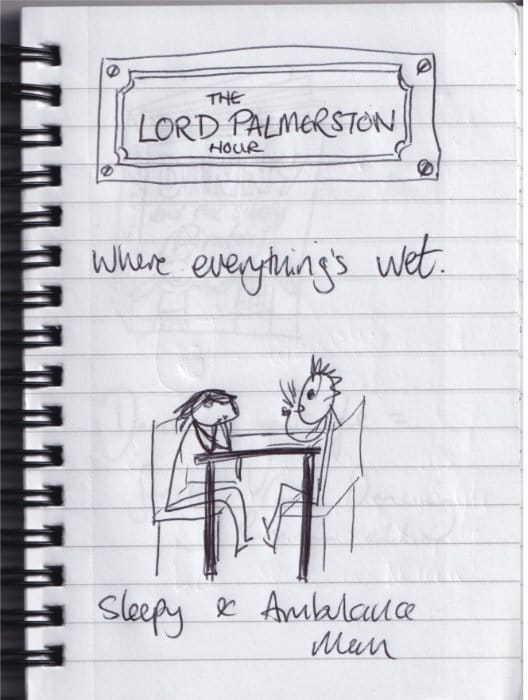 THE
LORD PALMERSTON
HOUR
Where everything's wet.
Sleepy & Ambulance
Man